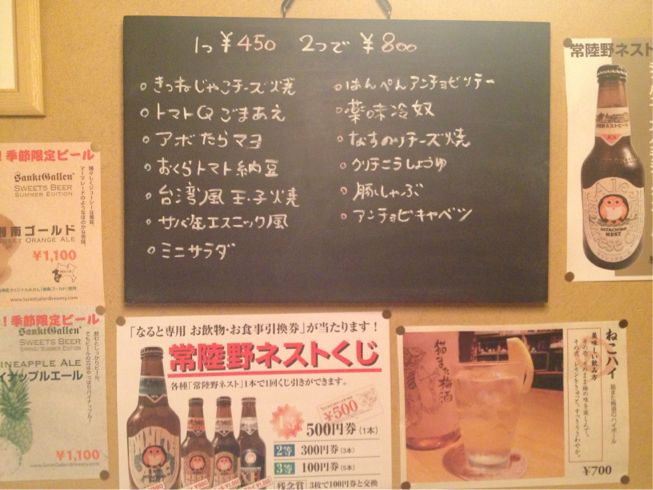 1つ ¥450 2つで ¥800
きつねじゃこチーズ焼
トマトQごまあえ
アボたらマヨ
おくらトマト納豆
台湾風玉子焼
サバ缶エスニック風
ミニサラダ
はんぺんアンチョビソテー
薬味冷奴
なすのりチーズ焼
クリチニラしょうゆ
豚しゃぶ
アンチョビキャベツ
常陸野ネスト
HITACHINO
NEST
！季節限定ビール
SanktGallen
SWEETS BEER
SUMMER EDITION
湘南ゴールド
ORANGE ALE
¥1,100
www.SanktGallenBrewery.com
！季節限定ビール
SanktGallen
SWEETS BEER
PINEAPPLE ALE
イナップルエール
¥1,100
www.SanktGallenBrewery.com
「なると専用 お飲物・お食事引換券」が当たります！
常陸野ネストくじ
各種「常陸野ネスト」1本で1回くじ引きができます。
¥500
500円券（1本）
2等 300円券（3本）
3等 100円券（5本）
残念賞 3枚で100円券と交換
ねこハイ
猫また梅酒のハイボール
美味しい飲み方
猫また梅酒
¥700